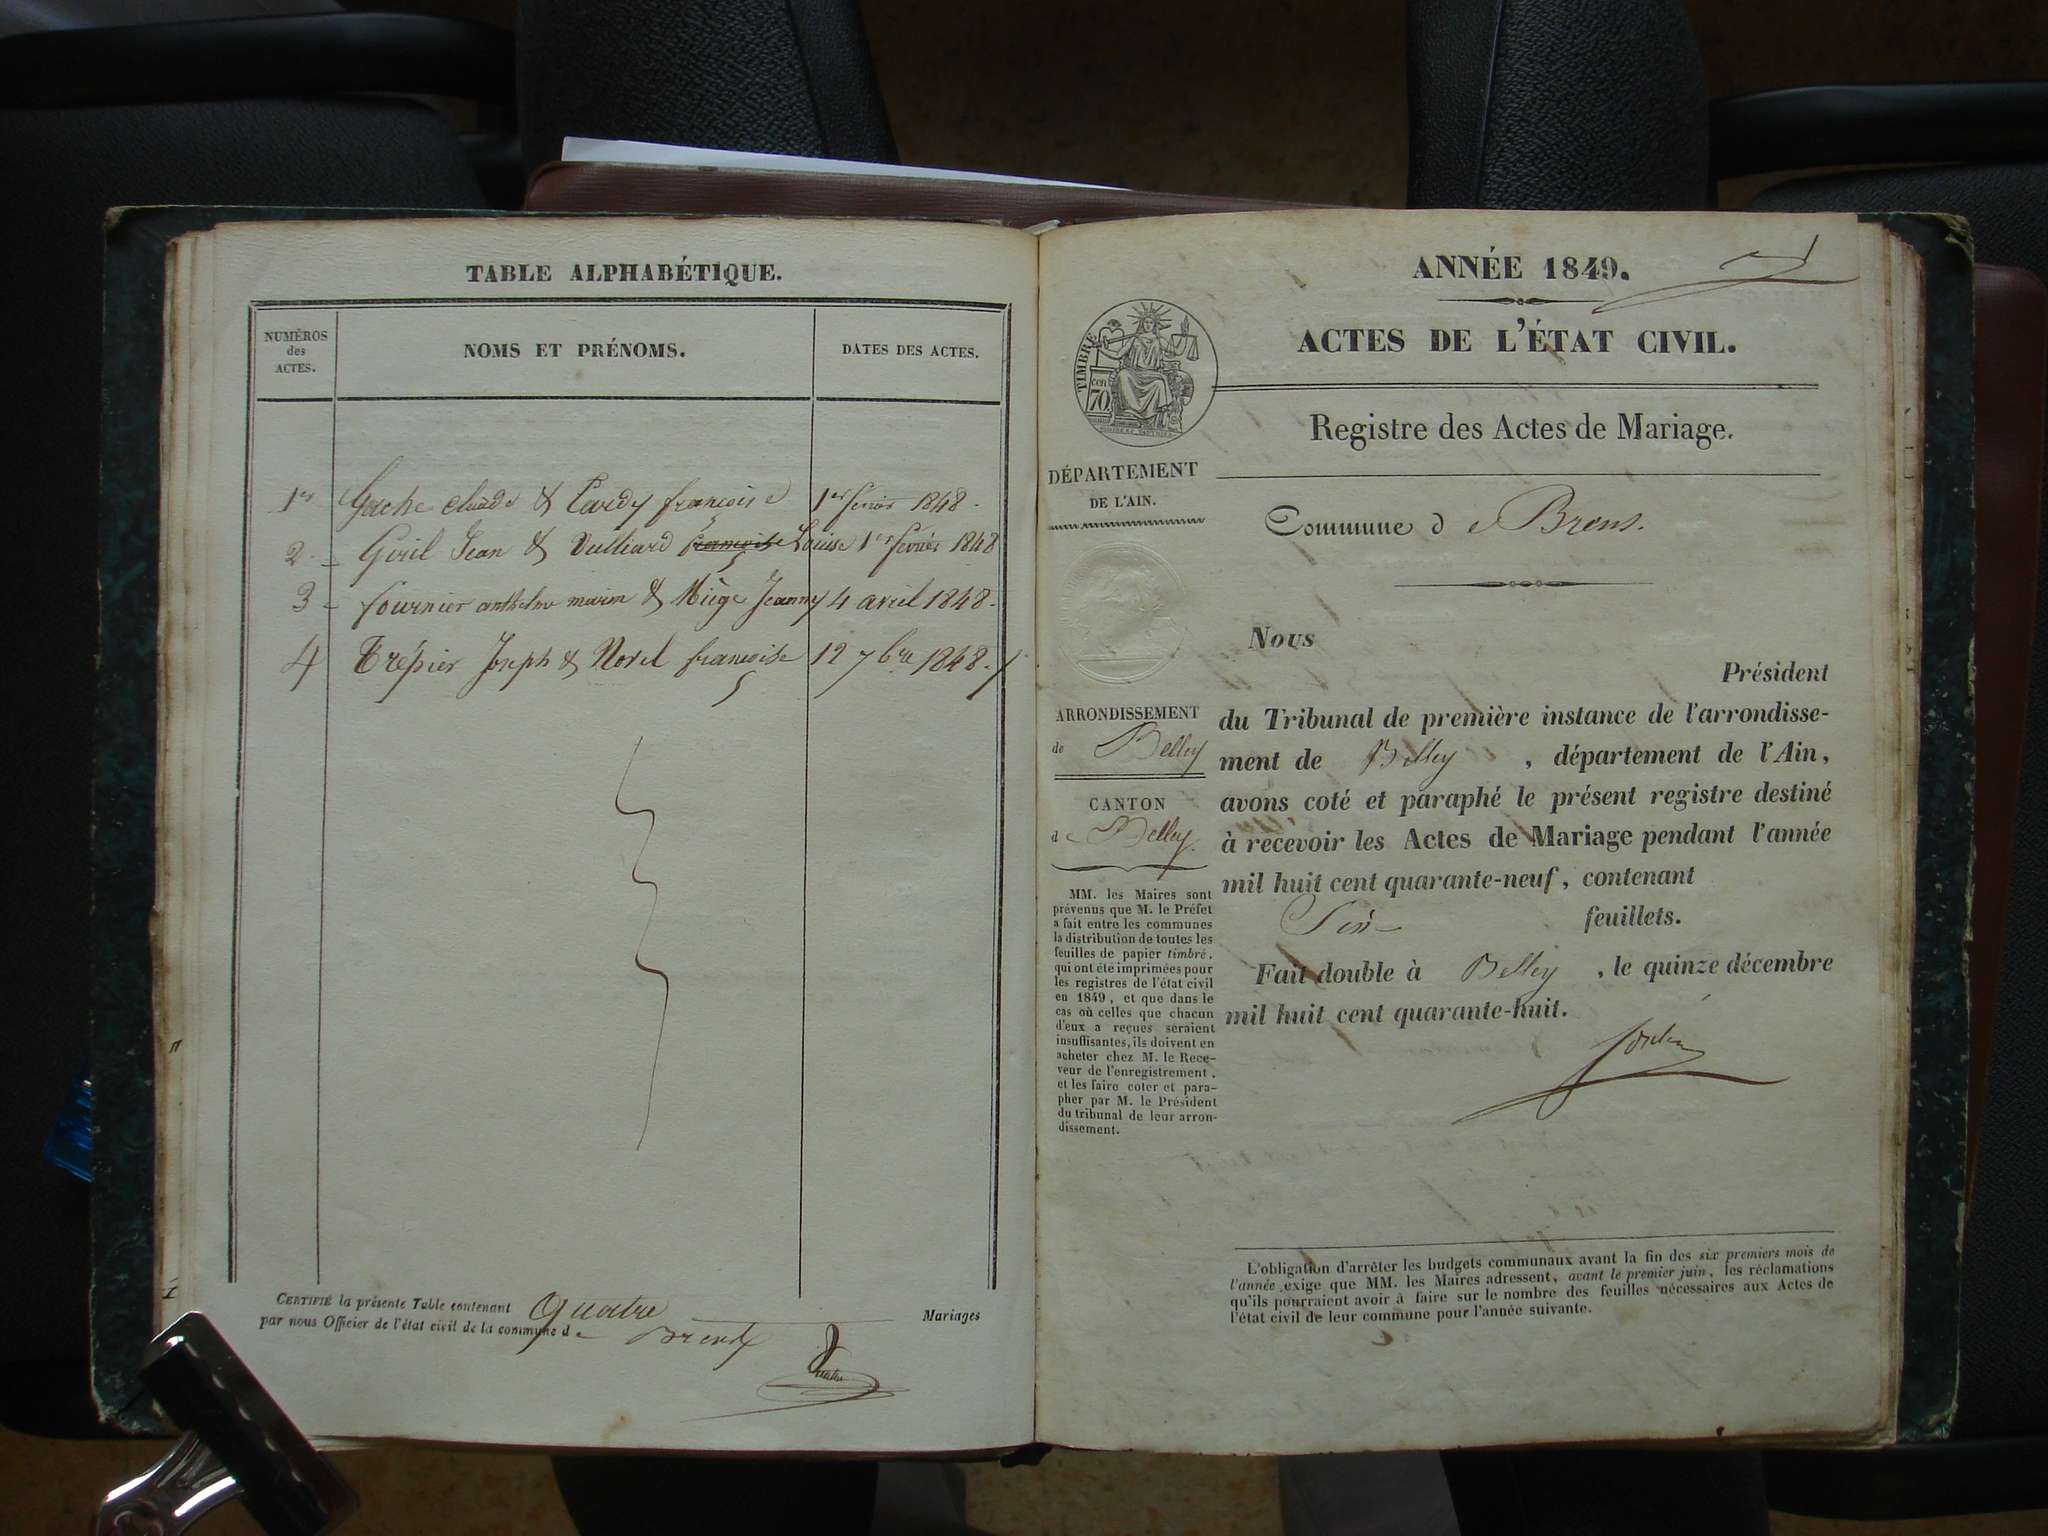 TABLE ALPHABÉTIQUE.
NUMÉROS
des
ACTES.
NOMS ET PRÉNOMS.
DATES DES ACTES.
1er Gache Claude & Pardy françoise 1er fevrier 1848.
2 Jean & Vulliard françoise Louise 1er fevrier 1848
3 fournier anthelme marin & Miège Jeanny 4 avril 1848.
4 Trépier Joseph & françoise 12 7bre 1848.
CERTIFIÉ la présente Table contenant quatre Mariages
par nous Officier de l'état civil de la commune de Brens
ANNÉE 1849.
ACTES DE L'ÉTAT CIVIL.
TIMBRE
cen
70.
Registre des Actes de Mariage.
DÉPARTEMENT
DE L'AIN.
Commune de Brens.
ARRONDISSEMENT
de Belley
CANTON
de Belley.
MM. les Maires sont
prévenus que M. le Préfet
a fait entre les communes
la distribution de toutes les
feuilles de papier timbré,
qui ont été imprimées pour
les registres de l'état civil
en 1849, et que dans le
cas où celles que chacun
d'eux a reçues seraient
insuffisantes, ils doivent en
acheter chez M. le Rece-
veur de l'enregistrement,
et les faire coter et para-
pher par M. le Président
du tribunal de leur arron-
dissement.
Nous
Président
du Tribunal de première instance de l'arrondisse-
ment de Belley , département de l'Ain,
avons coté et paraphé le présent registre destiné
à recevoir les Actes de Mariage pendant l'année
mil huit cent quarante-neuf, contenant
Six feuillets.
Fait double à Belley , le quinze décembre
mil huit cent quarante-huit.
L'obligation d'arrêter les budgets communaux avant la fin des six premiers mois de
l'année exige que MM. les Maires adressent, avant le premier juin, les réclamations
qu'ils pourraient avoir à faire sur le nombre des feuilles nécessaires aux Actes de
l'état civil de leur commune pour l'année suivante.